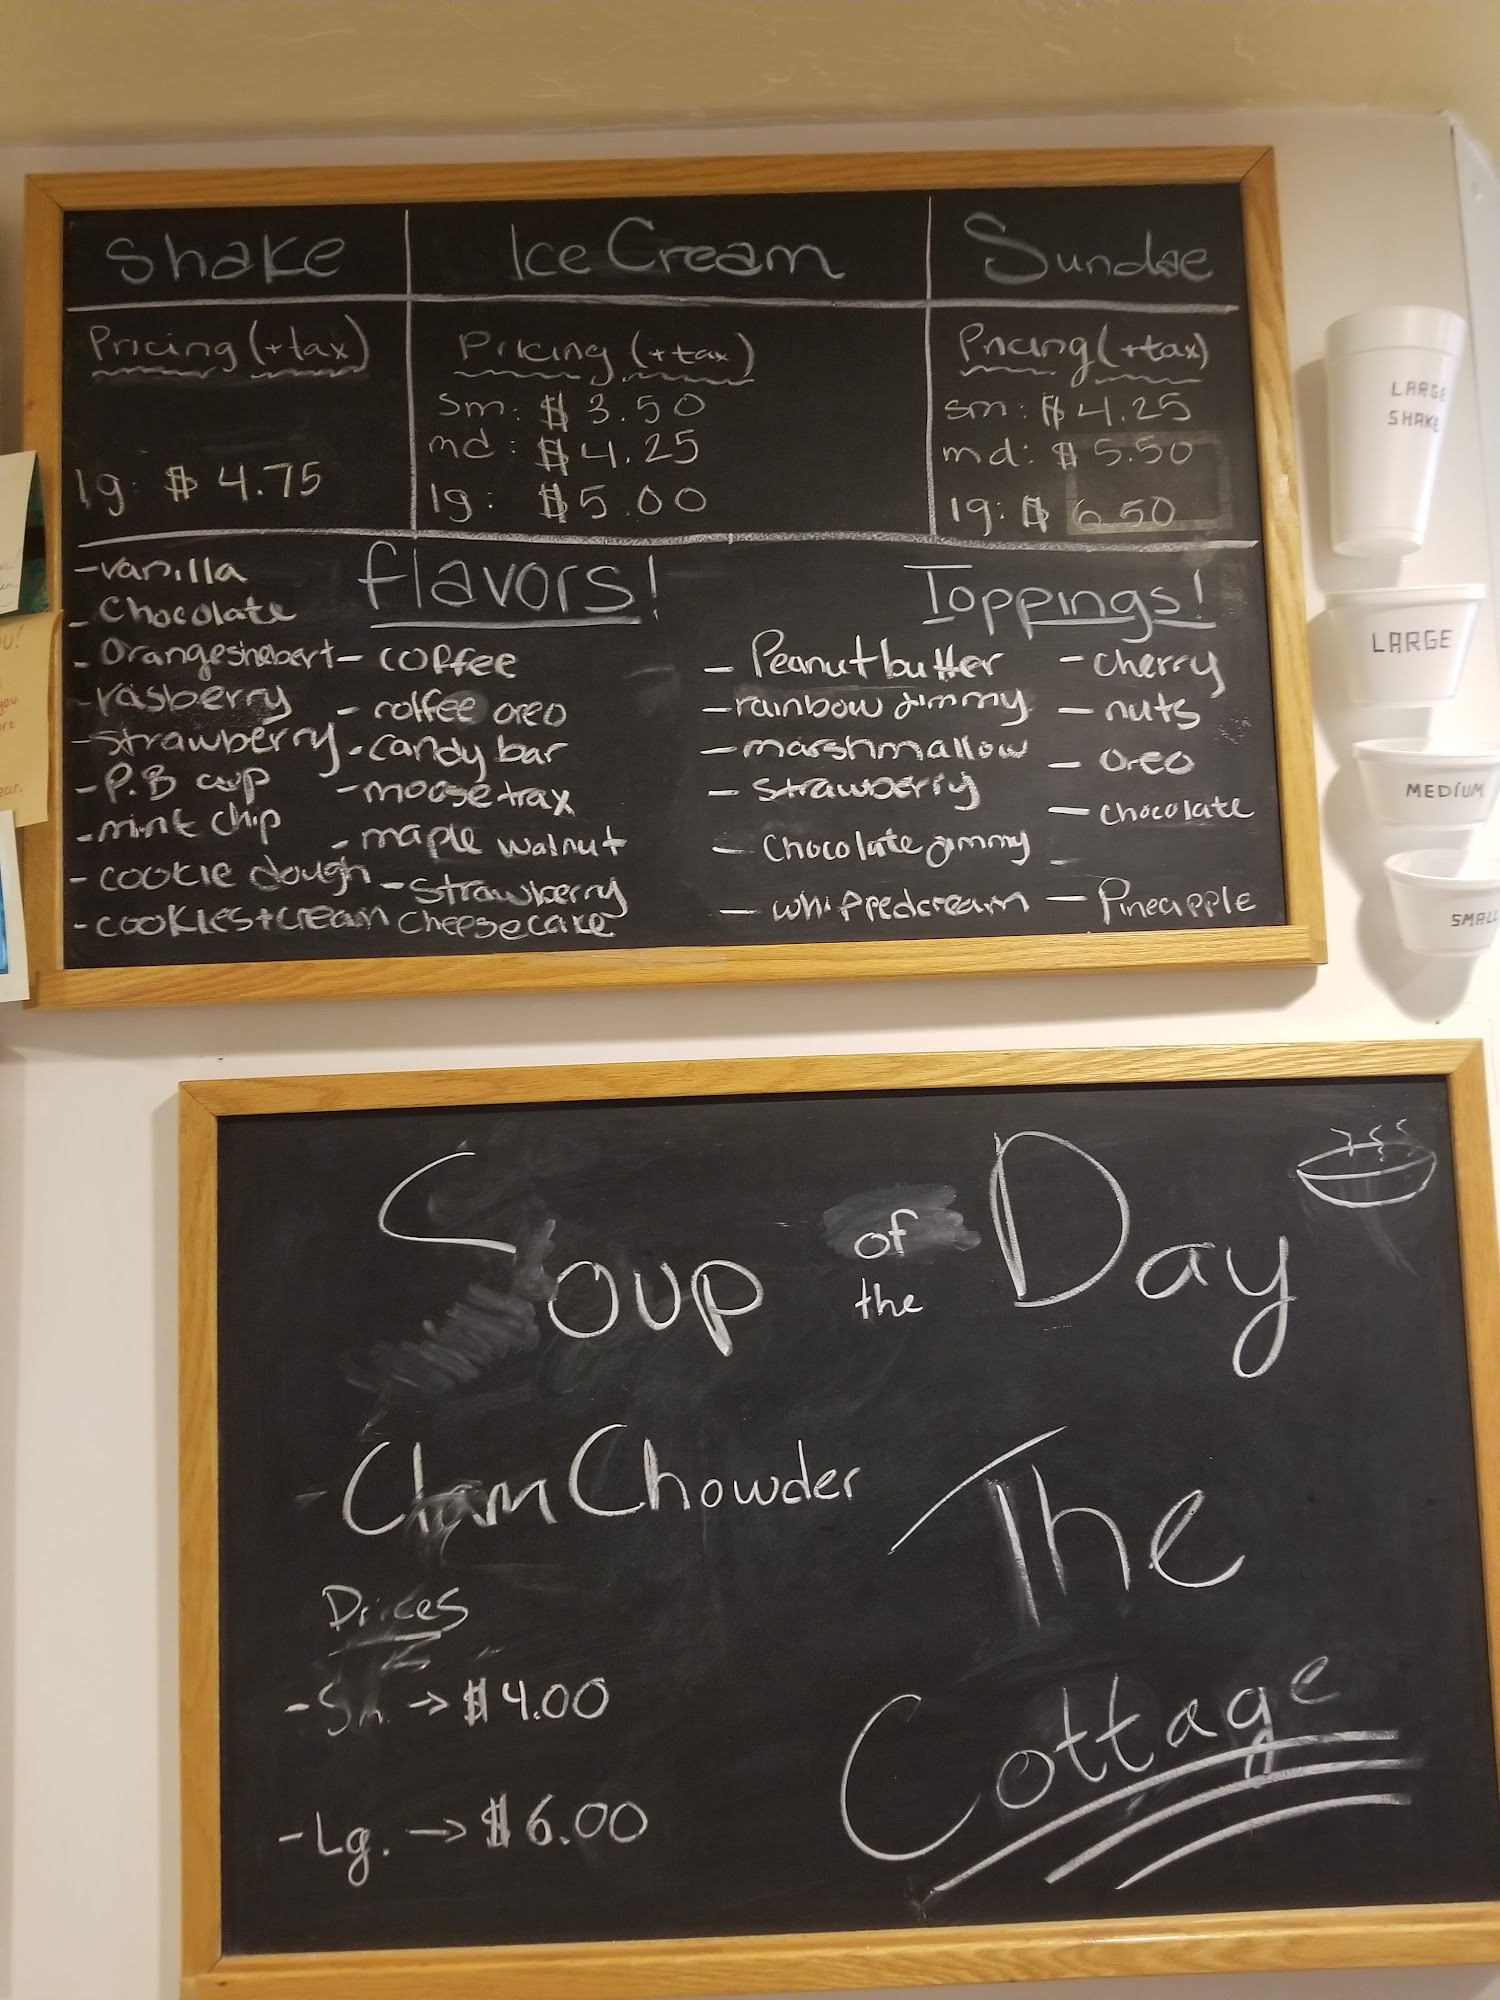 Shake
Pricing (+tax)
lg: $ 4.75
Ice Cream
Pricing (+tax)
sm: $ 3.50
md: $ 4.25
lg: $5.00
Sundae
Pricing (+tax)
sm: $ 4.25
md: $ 5.50
lg: $ 6.50
flavors!
-vanilla
- Chocolate
- Orangesherbert
- rasberry
- strawberry
- P.B cup
- mint chip
- cookie dough
- cookies+cream
- coffee
- coffee oreo
- candy bar
- moose trax
- maple walnut
- strawberry
cheesecake
Toppings!
- Peanut butter
- rainbow jimmy
- marshmallow
- strawberry
- Chocolate jimmy
- whippedcream
- cherry
- nuts
- oreo
- chocolate
-
- Pineapple
LARGE
SHAKE
LARGE
MEDIUM
SMALL
Soup of the Day
- Clam Chowder
Prices
- Sm. → $4.00
- Lg. → $6.00
The
Cottage